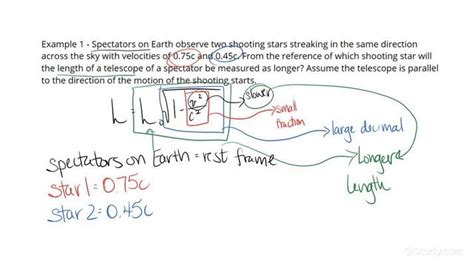 Example 1 - Spectators on Earth observe two shooting stars streaking in the same direction
across the sky with velocities of 0.75c and 0.45c. From the reference of which shooting star will
the length of a telescope of a spectator be measured as longer? Assume the telescope is parallel
to the direction of the motion of the shooting starts.
slower
L = L₀ √1 - v²/c²
small
fraction
large decimal
spectators on Earth = rest frame
Longer
length
star 1 = 0.75c
star 2 = 0.45c
Study.com